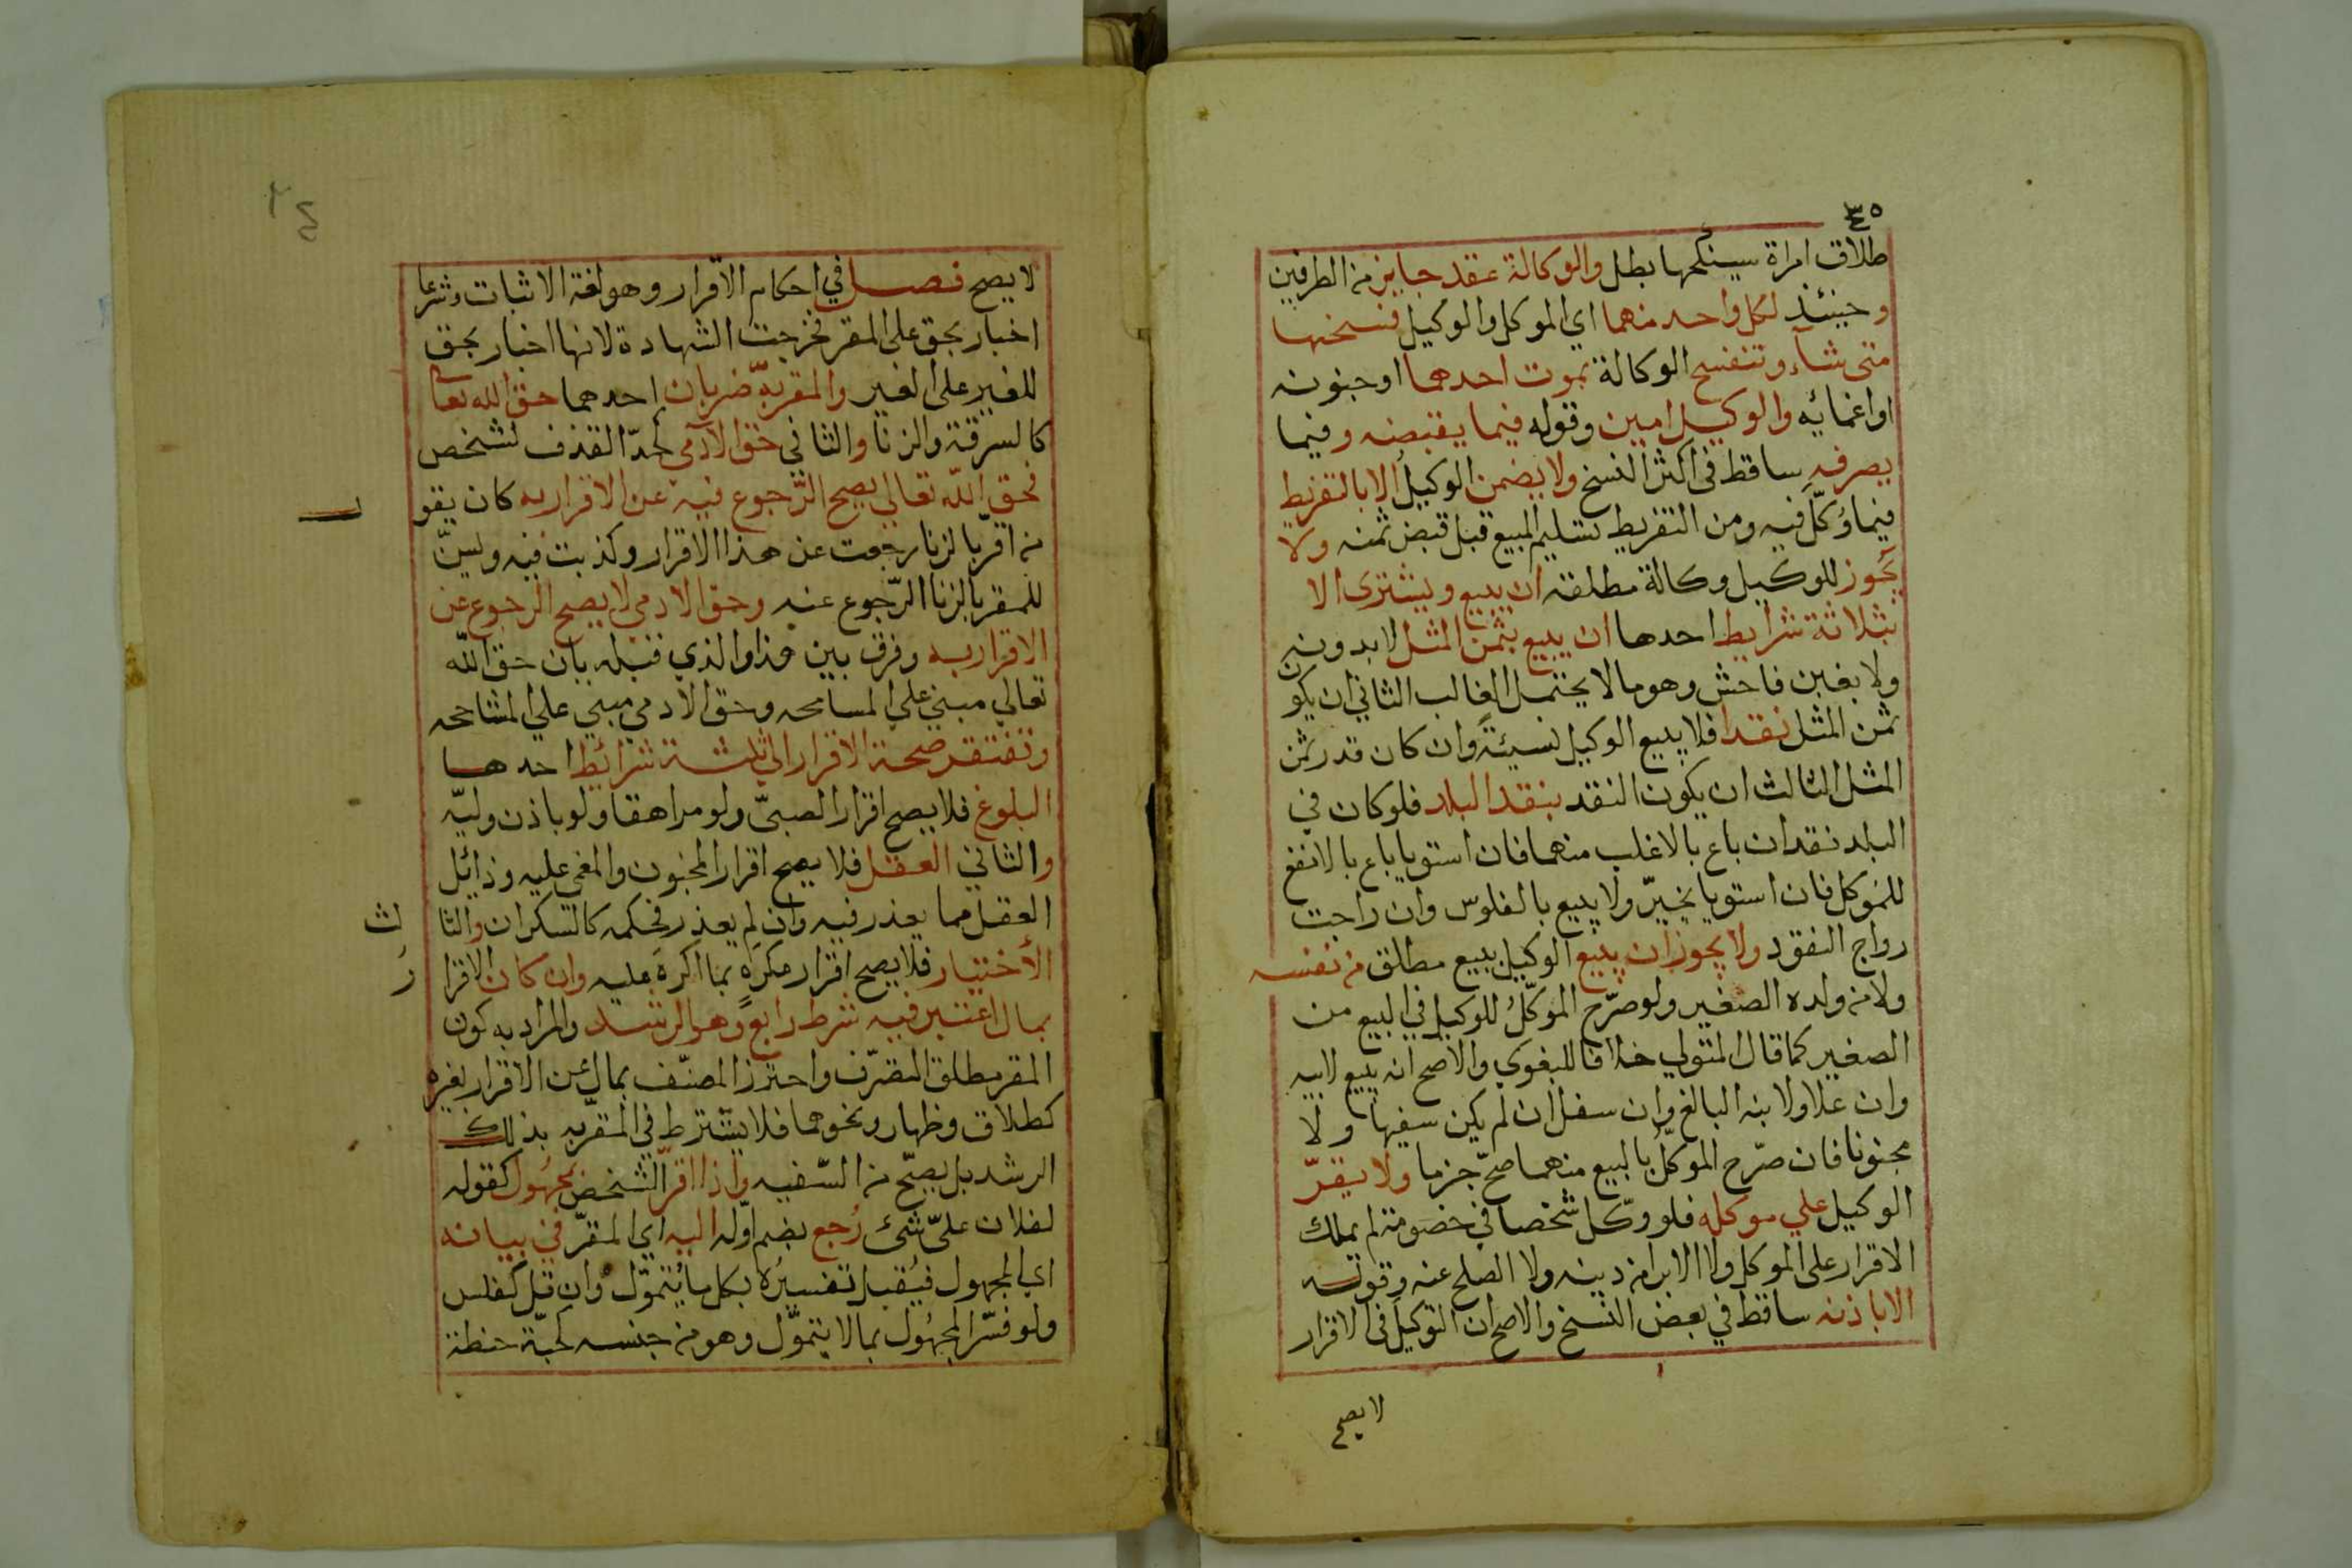 ٣٥
طلاق امراة سينكحها بطل والوكالة عقد جايز من الطرفين
وحينئذ لكل واحد منهما اي الموكل والوكيل فسخها
متى شآء وتنفسخ الوكالة بموت احدهما او جنونه
او اغمائه والوكيل امين وقوله فيما يقبضه وفيما
يصرفه ساقط فى اكثر النسخ ولا يضمن الوكيل الا بالتفريط
فيما وُكّل فيه ومن التفريط تسليم المبيع قبل قبض ثمنه ولا
يجوز للوكيل وكالة مطلقه ان يبيع ويشترى الا
بثلاثة شرايط احدها ان يبيع بثمن المثل لا بدونه
ولا بغبن فاحش وهو ما لا يحتمل الغالب الثاني ان يكون
ثمن المثل نقدا فلا يبيع الوكيل نسيئةً وان كان قدر ثمن
المثل الثالث ان يكون النقد بنقد البلد فلو كان في
البلد نقدان باع بالاغلب منهما فان استويا باع بالانفع
للموكل فان استويا يخيّر ولا يبيع بالفلوس وان راجت
رواج النقود ولا يجوز ان يبيع الوكيل بيع مطلق من نفسه
ولا من ولده الصغير ولو صرّح الموكّلُ للوكيل في البيع من
الصغير كما قال المتولي خلافا للبغوي والاصح انه يبيع لابيه
وان علا ولابنه البالغ وان سفل ان لم يكن سفيها ولا
مجنونا فان صرّح الموكّلُ بالبيع منهما صحّ جزما ولا يقرّ
الوكيل علي موكله فلو وكّل شخصا في خصومة لم يملك
الاقرار على الموكل ولا الابرا من دينه ولا الصلح عنه وقوله
الا باذنه ساقط في بعض النسخ والاصح ان التوكيل فى الاقرار
لا يصح
لا يصح فصل في احكام الاقرار وهو لغة الاثبات وشرعا
اخبار بحق على المقر فخرجت الشهادة لانها اخبار بحق
للغير على الغير والمقر به ضربان احدهما حق الله تعا
كالسرقة والزنا والثاني حق الآدمي كحدّ القذف لشخص
فحق اللّه تعالي يصح الرّجوع فيه عن الاقرار به كان يقو
ل
من اقرّ بالزنا رجعت عن هذا الاقرار وكذبت فيه ويسنّ
للمقر بالزنا الرّجوع عنه وحق الادمي لا يصح الرجوع عن
الاقرار به وفرق بين هذا والذي قبله بان حق اللّه
تعالي مبني علي المسامحه وحق الادمي مبني علي المشاححه
وتفتقر صحة الاقرار الي ثلثة شرائط احدها
البلوغ فلا يصح اقرار الصبىّ ولو مراهقا ولو باذن وليّه
والثاني العقل فلا يصح اقرار المجنون والمغمى عليه وزائل
العقل مما يعذر فيه وان لم يعذر فحكمه كالسكران والثا
لث
الأختيار فلا يصح اقرار مكرهٍ بما اكره عليه وان كان الاقرا
ر
بمال اعتبر فيه شرط رابع وهو الرشد والمراد به كون
المقر مطلق التصّرف واحترز المصنّف بمال عن الاقرار بغيره
كطلاق وظهار ونحوهما فلا يشترط في المقرّبه بذلك
الرشد بل يصحّ من السّفيه واذا اقرّ الشخص بمجهُول كقوله
لفلان علىّ شئ رُجع بضم اوّله اليه اي المقرّ في بيانه
اي المجهول فيُقبل تفسيرُه بكل ما يُتموّل وان قل كفلس
ولو فسّر المجهُول بما لا يتموّل وهو من جنسه كحبّة حنطة